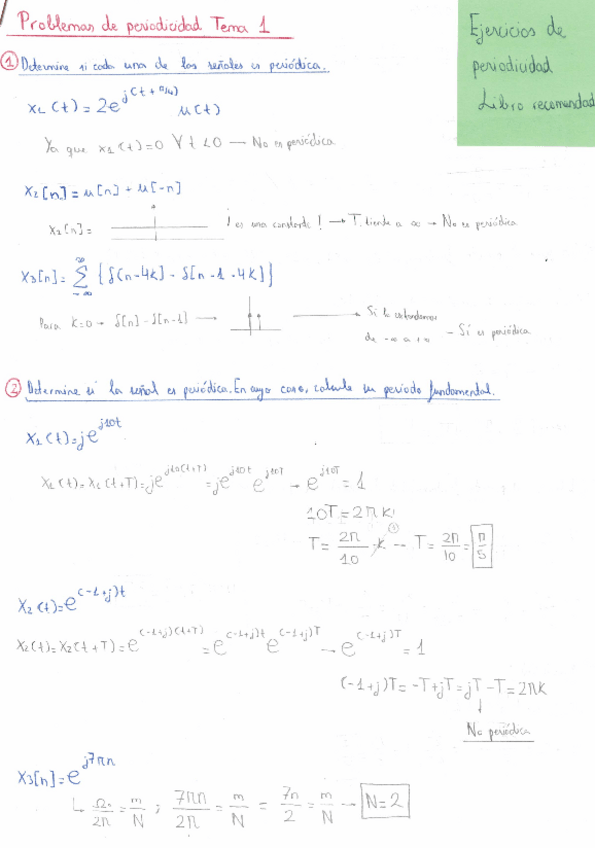 Problemas de periodicidad Tema 1
Ejercicios de
periodicidad
Libro recomendad
① Determine si cada una de las señales es periódica.
x₁(t) = 2e^{j(t+π/4)} μ(t)
Ya que x₁(t)=0 ∀ t<0 — No es periódica
x₂[n] = μ[n] + μ[-n]
x₂[n] = ¡es una constante! → T. tiende a ∞ → No es periódica
x₃[n] = Σ_{-∞}^{∞} {δ[n-4k] - δ[n-1-4k]}
Para k=0 → δ[n] - δ[n-1] → → Si lo extendemos
de -∞ a +∞ - Sí es periódica
② Determine si la señal es periódica. En cuyo caso, calcule su periodo fundamental.
x₁(t)=je^{j10t}
x₁(t)=x₁(t+T)=je^{j10(t+T)}=je^{j10t} e^{j10T} → e^{j10T}=1
10T=2πk
T=2π/10 · k → T=2π/10=π/5
x₂(t)=e^{(-1+j)t}
x₂(t)=x₂(t+T)=e^{(-1+j)(t+T)}=e^{(-1+j)t} e^{(-1+j)T} → e^{(-1+j)T}=1
(-1+j)T=-T+jT=jT-T=2πk
↓
No periódica
x₃[n]=e^{j7πn}
↳ Ωn/2π=m/N ; 7πn/2π=m/N = 7n/2=m/N → N=2